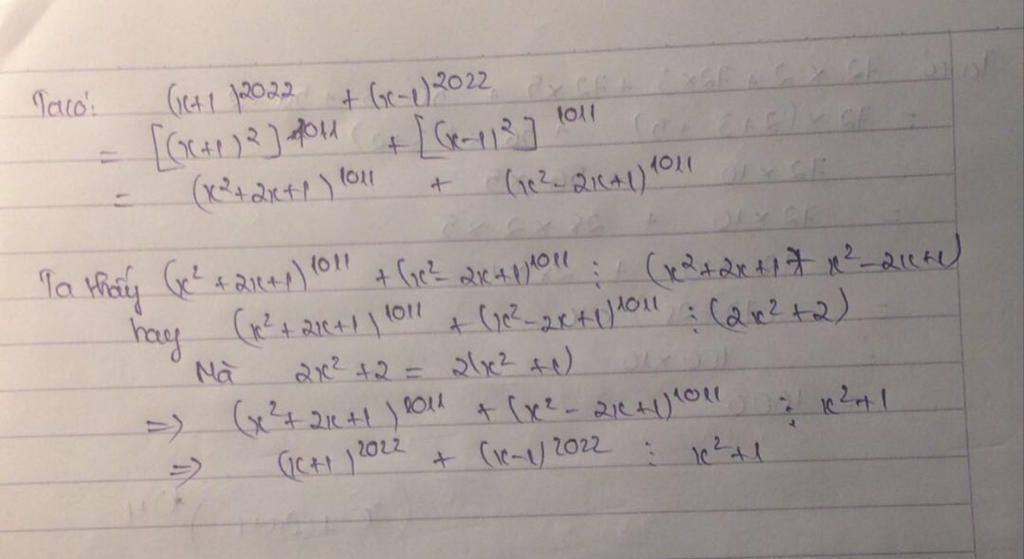 Ta có: (x+1)²⁰²² + (x-1)²⁰²²
= [(x+1)²]¹⁰¹¹ + [(x-1)²]¹⁰¹¹
= (x²+2x+1)¹⁰¹¹ + (x²-2x+1)¹⁰¹¹
Ta thấy (x²+2x+1)¹⁰¹¹ + (x²-2x+1)¹⁰¹¹ ⋮ (x²+2x+1+x²-2x+1)
hay (x²+2x+1)¹⁰¹¹ + (x²-2x+1)¹⁰¹¹ ⋮ (2x²+2)
Mà 2x²+2 = 2(x²+1)
=> (x²+2x+1)¹⁰¹¹ + (x²-2x+1)¹⁰¹¹ ⋮ x²+1
=> (x+1)²⁰²² + (x-1)²⁰²² ⋮ x²+1